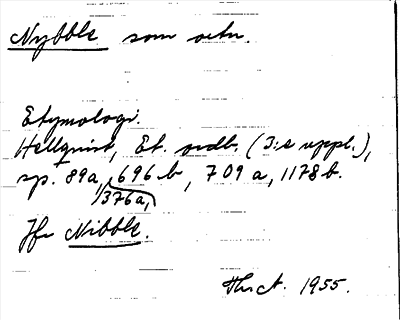 Nybble som ortn.
Etymologi.
Hellquist, Et. ordb. (3:e uppl.),
sp. 89a, 696 b, 709 a, 1178 b.
376a,
Jfr Nibble.
1955.